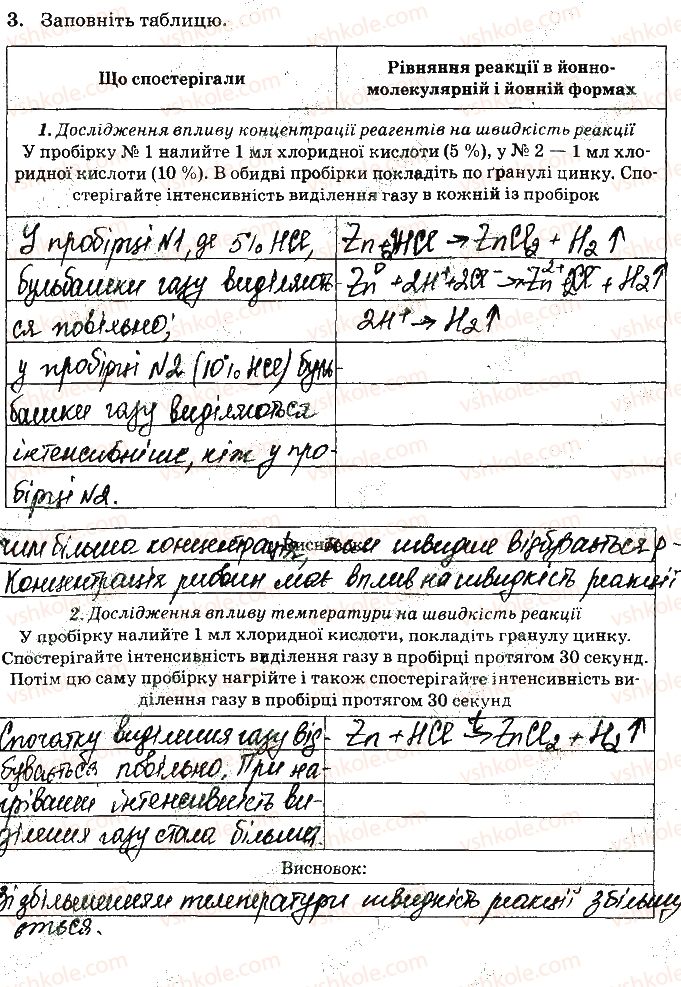 3. Заповніть таблицю.
Що спостерігали
Рівняння реакції в йонно-
молекулярній і йонній формах
1. Дослідження впливу концентрації реагентів на швидкість реакції
У пробірку № 1 налийте 1 мл хлоридної кислоти (5 %), у № 2 — 1 мл хло-
ридної кислоти (10 %). В обидві пробірки покладіть по ґранулі цинку. Спо-
стерігайте інтенсивність виділення газу в кожній із пробірок
У пробірці №1, де 5% HCl,
бульбашки газу виділяють-
ся повільно;
у пробірці №2 (10% HCl) буль-
башки газу виділяються
інтенсивніше, ніж у про-
бірці №2.
Zn + 2HCl → ZnCl₂ + H₂↑
Zn⁰ + 2H⁺ + 2Cl⁻ → Zn²⁺ + 2Cl⁻ + H₂↑
2H⁺ → H₂↑
Висновок:
чим більша концентрація, тим швидше відбувається р-
Концентрація речовин має вплив на швидкість реакції
2. Дослідження впливу температури на швидкість реакції
У пробірку налийте 1 мл хлоридної кислоти, покладіть гранулу цинку.
Спостерігайте інтенсивність виділення газу в пробірці протягом 30 секунд.
Потім цю саму пробірку нагрійте і також спостерігайте інтенсивність ви-
ділення газу в пробірці протягом 30 секунд
Спочатку виділення газу від-
бувається повільно. При на-
гріванні інтенсивність ви-
ділення газу стала більша.
Zn + HCl →t ZnCl₂ + H₂↑
Висновок:
Зі збільшенням температури швидкість реакції збільшу
ється.